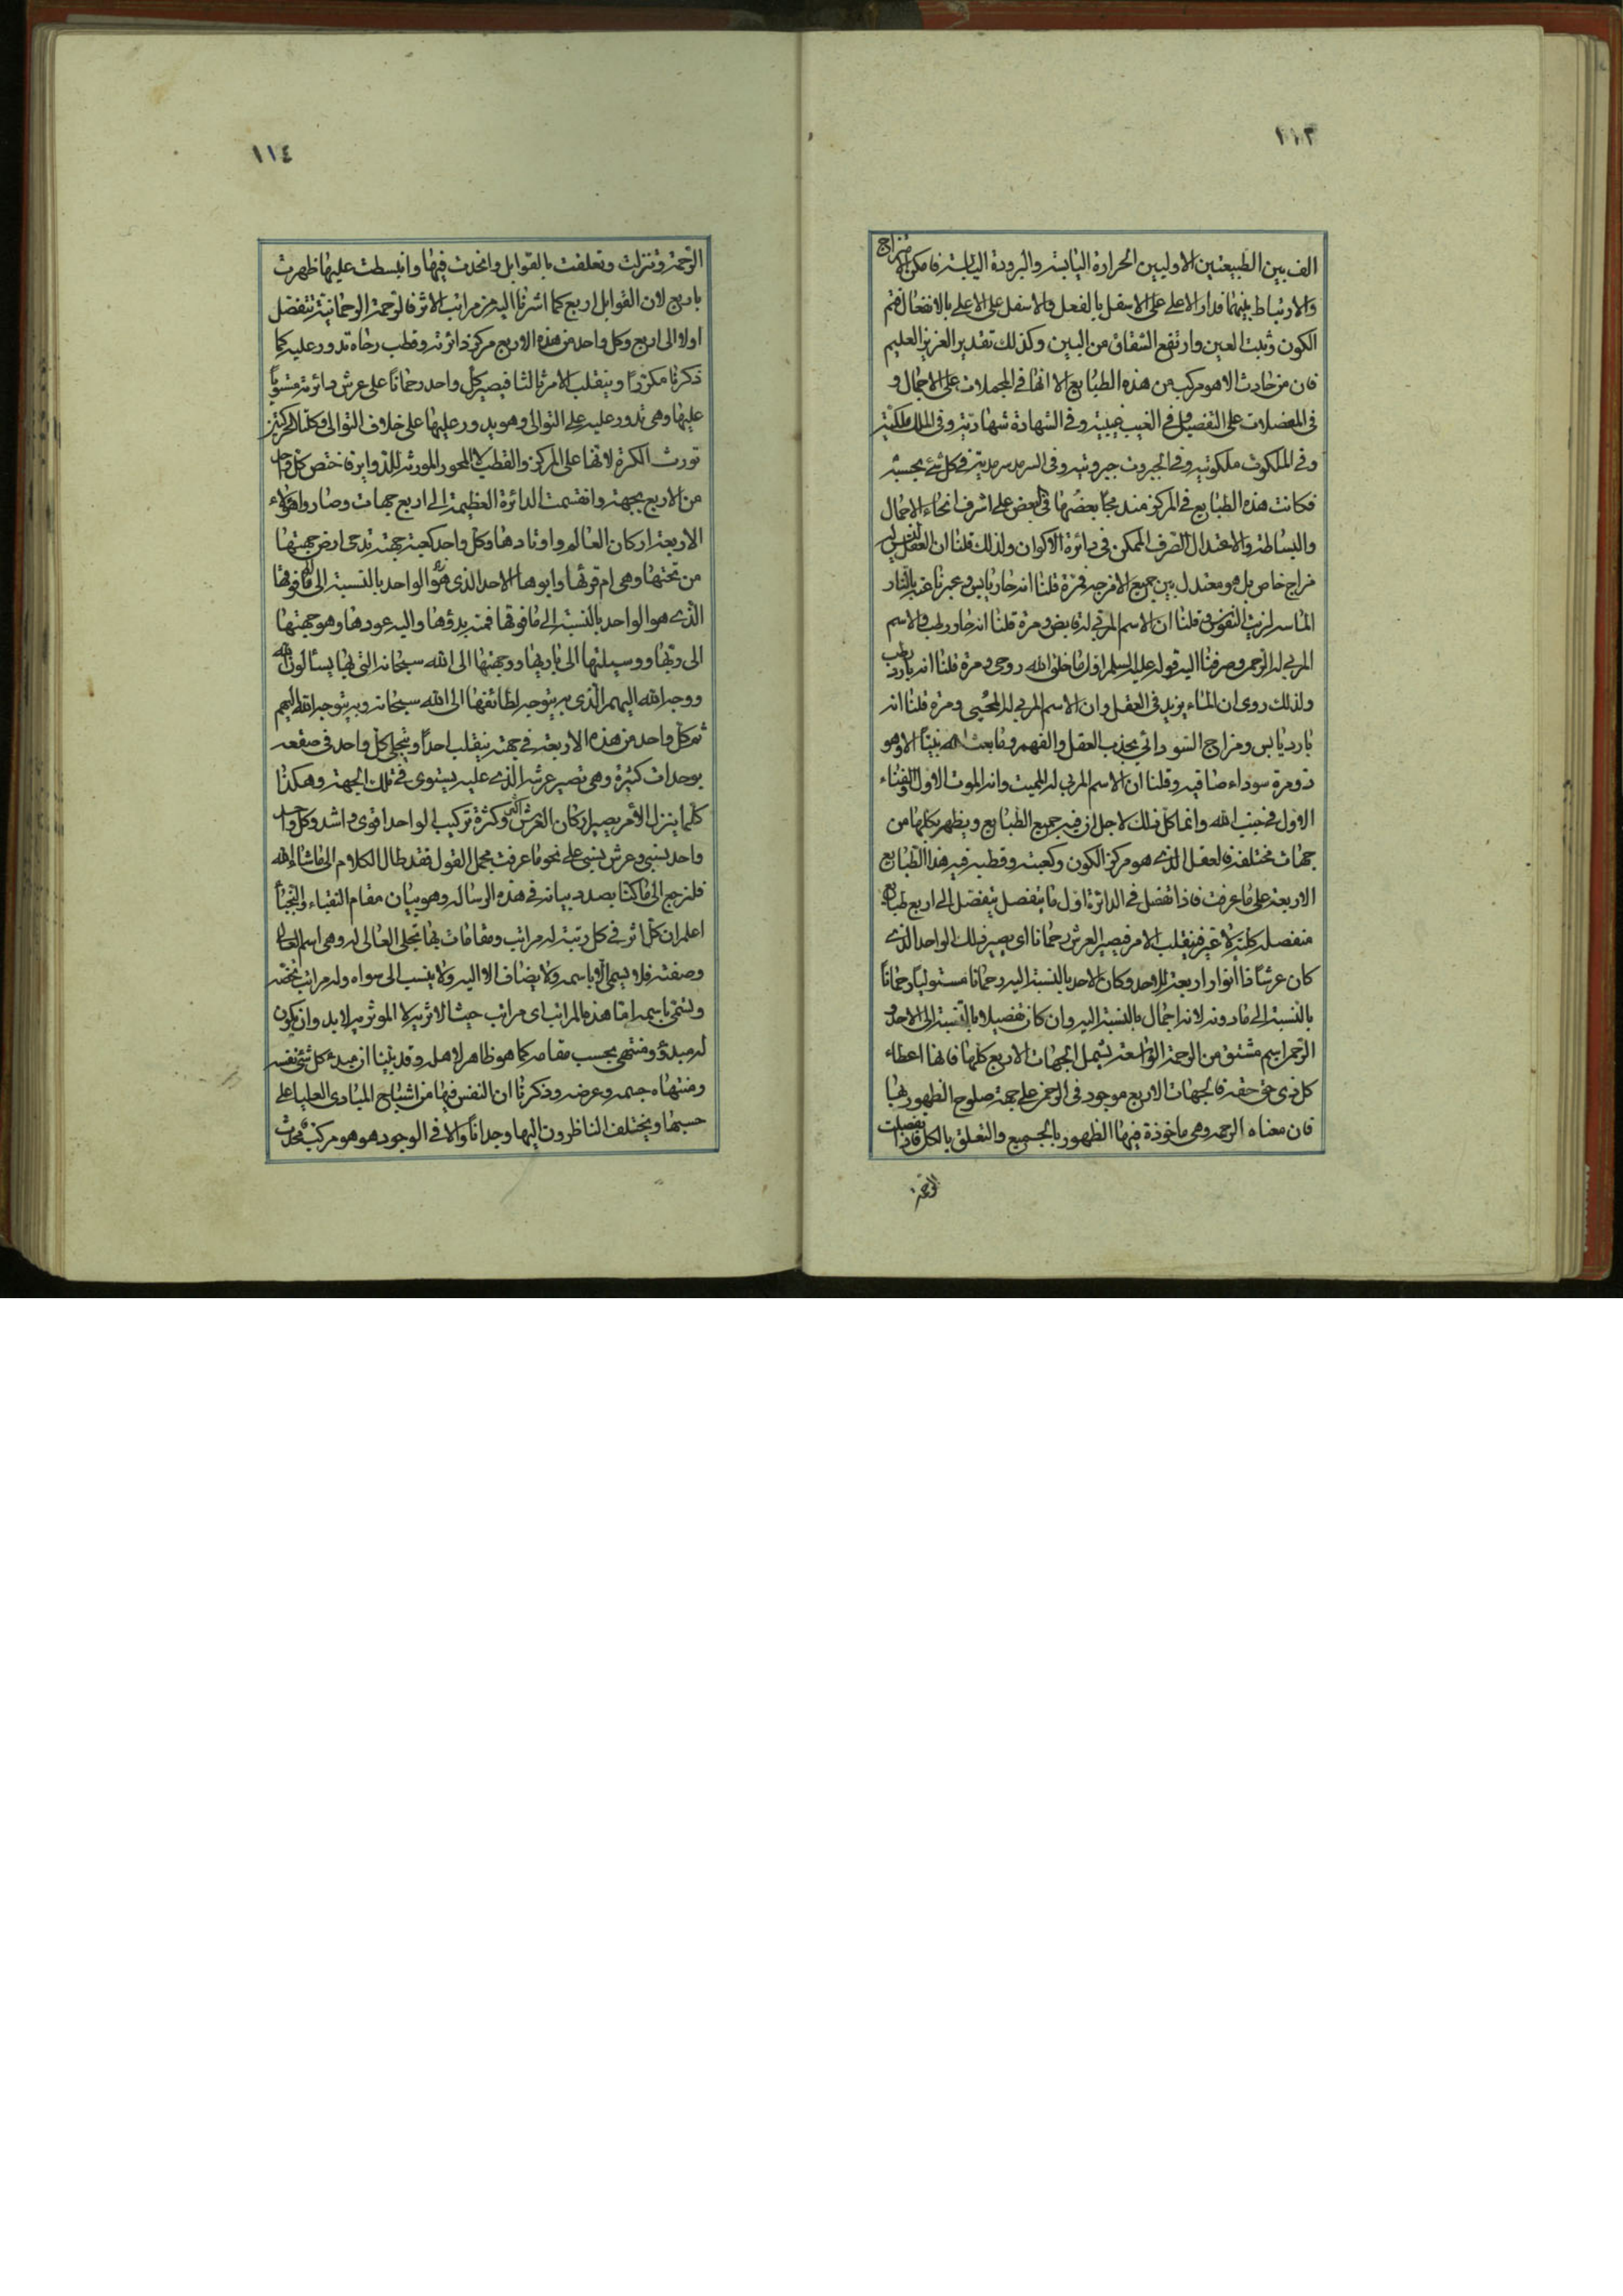 ١١٣
الف بين الطبيعتين الاوليين الحرارة اليابسة والبرودة اليابسة فامكن امتزاج
والارتباط بينهما فدار الاعلى على الاسفل بالفعل والاسفل على الاعلى بالانفعال فتم
الكون وثبت العين وارتفع الشقاق من البين وكذلك تقدير العزيز العليم
فان من حادث الا هو مركب من هذه الطبايع الا انها في المجملات على الاجمال و
في المفصلات على التفصيل في الغيب غيبية وفي الشهادة شهادية وفي الملك ملكية
وفي الملكوت ملكوتية وفي الجبروت جبروتية وفي السرمد سرمدية في كل شئ بحسبه
فكانت هذه الطبايع في المركز مندمجا بعضها في بعض على اشرف انحاء الاجمال
والبساطة والاعتدال الصرف الممكن في دائرة الاكوان ولذلك قلنا ان العقل ليس له
مزاج خاص بل هو معتدل بين جميع الامزجة فمرة قلنا انه حار يابس وعبرنا عنه بالنار
الماسة لزيت النفوس وقلنا ان الاسم المربي له قابض ومرة قلنا انه حار رطب والاسم
المربي له الرحمن وصرفنا اليه قوله عليه السلم اول ما خلق الله روحي ومرة قلنا انه بارد رطب
ولذلك روي ان الماء يزيد في العقل وان الاسم المربي له المحيي ومرة قلنا انه
بارد يابس ومزاج السوداني يجذب العقل والفهم وما بعث الله نبيا الا وهو
ذو مرة سوداء صافية وقلنا ان الاسم المربي له المميت وانه الموت الاول والفناء
الاول في جنب الله وانما كل ذلك لاجل ان فيه جميع الطبايع ويظهر بكلها من
جهات مختلفة فالعقل الذي هو مركز الكون وكعبته وقطبه فيه هذه الطبايع
الاربعة على ما عرفت فاذا تفصل في الدائرة اول ما يتفصل يتفصل الى اربع طبايع
منفصلة كلية لا غير فينقلب الامر فيصير العرش رحمانا اي يصير ذلك الواحد الذي
كان عرشا ذا انوار اربعة للاحد وكان الاحد بالنسبة اليه رحمانا مستوليا رحمانا
بالنسبة الى ما دونه لانه اجمال بالنسبة اليه وان كان تفصيلا بالنسبة الى الاحد و
الرحمن اسم مشتق من الرحمة الواسعة يشمل الجهات الاربع كلها فانها اعطاء
كل ذي حق حقه فالجهات الاربع موجود في الرحمن على جهة صلوح الظهور بها
فان معناه الرحمة وهي ماخوذة فيها الظهور بالجميع والتعلق بالكل فاذا تفصلت
الرحمة
١١٤
الرحمة وتنزلت وتعلقت بالقوابل واتحدت فيها وانبسطت عليها ظهرت
باربع لان القوابل اربع كما اشرنا اليه من مراتب الاثر فالرحمة الرحمانية تتفصل
اولا الى اربع وكل واحد من هذه الاربع مركز دائرته وقطب رحاه تدور عليه كما
ذكرنا مكررا وينقلب الامر ثالثا فيصير كل واحد رحمانا على عرش دائرته مستويا
عليها وهي تدور عليه على التوالي وهو يدور عليها على خلاف التوالي وكلتا الحركتين
تورث الكرة لانها على المركز والقطب لا المحور المورث للدواير فاختص كل واحد
من الاربع بجهة وانقسمت الدائرة العظيمة الى اربع جهات وصاروا هؤلاء
الاربعة اركان العالم واوتادها وكل واحد كعبة جهته تدحى ارض جهتها
من تحتها وهي ام قراها وابوها الاحد الذي هو الواحد بالنسبة الى ما فوقها
الذي هو الواحد بالنسبة الى ما فوقها فمنه بدؤها واليه عودها وهو جهتها
الى ربها ووسيلتها الى باريها ووجهتها الى الله سبحانه التي بها يسألون الله
ووجه الله اليهم الذي به يتوجه لطائفها الى الله سبحانه وبه يتوجه الله اليهم
ثم كل واحد من هذه الاربعة في جهته ينقلب احدا ويتجلى كل واحد في صقعه
بوحدات كثيرة وهي تصير عرشه الذي عليه يستوي في تلك الجهة وهكذا
كلما ينزل الأمر يصير اركان العرش اكثر وكثرة تركيب الواحد اقوى واشد وكل واحد
واحد نسبي وعرش نسبي على نحو ما عرفت مجمل القول فقد طال الكلام الى ما شاء الله
فلنرجع الى ما كنا بصدد بيانه في هذه الرسالة وهو بيان مقام النقباء والنجباء
اعلم ان كل اثر في كل رتبة له مراتب ومقامات بها تجلى العالي له وهي اسم العالي
وصفته فلا يسمى الا باسمه ولا يضاف الا اليه ولا ينسب الى سواه وله مراتب تخصه
وتسمى باسمه اما هذه المراتب اي مراتب حيث الاثرية لا المؤثرية لا بد وان يكون
له مبدؤ ومنتهى بحسب مقامه كما هو ظاهر لاهله وقد بينا ان مبدء كل شئ نفسه
ومنتهاه جسمه وعرضه وذكرنا ان النفس فيها من اشباح المبادي العليا على
حسبها ويختلف الناظرون اليها وجدانا والا في الوجود هو هو مركب محدث